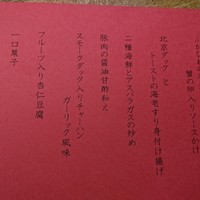 蟹の卵入りソースかけ
北京ダック と
トーストの海老すり身付け揚げ
二種海鮮とアスパラガスの炒め
豚肉の醤油甘酢和え
スモークダック入りチャーハン
ガーリック風味
フルーツ入り杏仁豆腐
一口菓子